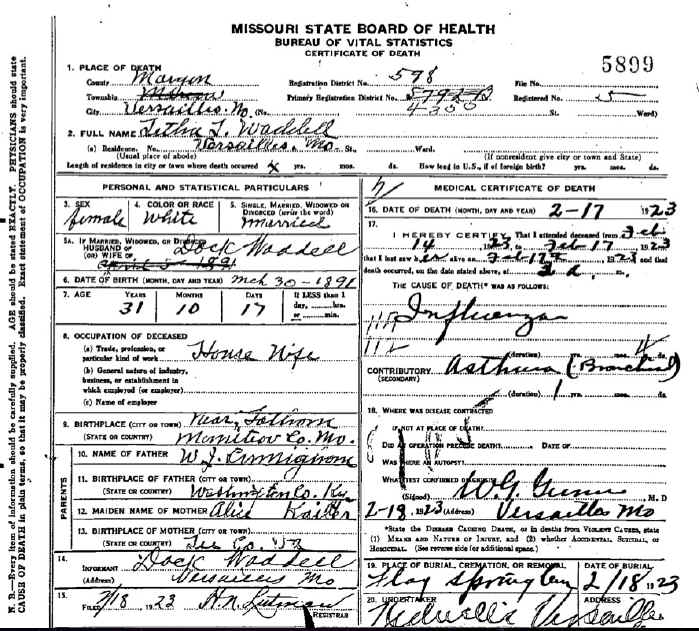 MISSOURI STATE BOARD OF HEALTH
BUREAU OF VITAL STATISTICS
CERTIFICATE OF DEATH
5899
1. PLACE OF DEATH
County Morgan Registration District No. 598 File No.
Township Primary Registration District No. 4350 Registered No. 5
City Versailles, Mo (No. St. Ward)
2. FULL NAME Waddell
(a) Residence. No. Versailles, Mo St. Ward.
(Usual place of abode) (If nonresident give city or town and State)
Length of residence in city or town where death occurred yrs. mos. ds. How long in U.S., if of foreign birth? yrs. mos. ds.
PERSONAL AND STATISTICAL PARTICULARS
3. SEX female
4. COLOR OR RACE White
5. SINGLE, MARRIED, WIDOWED OR DIVORCED (write the word) Married
5a. IF MARRIED, WIDOWED, OR DIVORCED
HUSBAND OF
(OR) WIFE OF Dock Waddell
6. DATE OF BIRTH (MONTH, DAY AND YEAR) Mch 30-1891
7. AGE YEARS MONTHS DAYS If LESS than 1
day, ......hrs.
or ......min.
31 10 17
8. OCCUPATION OF DECEASED
(a) Trade, profession, or
particular kind of work House Wife
(b) General nature of industry,
business, or establishment in
which employed (or employer)
(c) Name of employer
9. BIRTHPLACE (CITY OR TOWN) Near
(STATE OR COUNTRY) Co. Mo.
PARENTS
10. NAME OF FATHER W. J.
11. BIRTHPLACE OF FATHER (CITY OR TOWN)
(STATE OR COUNTRY) Washington Co. Ky
12. MAIDEN NAME OF MOTHER Alice
13. BIRTHPLACE OF MOTHER (CITY OR TOWN)
(STATE OR COUNTRY) Lee Co. Va
14.
INFORMANT Dock Waddell
(Address) Versailles Mo
15.
FILED 2/18, 1923 H. N. REGISTRAR
MEDICAL CERTIFICATE OF DEATH
16. DATE OF DEATH (MONTH, DAY AND YEAR) 2-17 1923
17.
I HEREBY CERTIFY, That I attended deceased from Feb
14, 1923, to Feb 17, 1923
that I last saw her alive on Feb 17, 1923 and that
death occurred, on the date stated above, at
THE CAUSE OF DEATH* WAS AS FOLLOWS:
Influenza
(duration) yrs. mos. 4 ds.
CONTRIBUTORY Asthma (Bronchial)
(SECONDARY)
(duration) yrs. mos. ds.
18. WHERE WAS DISEASE CONTRACTED
IF NOT AT PLACE OF DEATH?
DID AN OPERATION PRECEDE DEATH? DATE OF
WAS THERE AN AUTOPSY?
WHAT TEST CONFIRMED DIAGNOSIS?
(Signed) W. G. Gunn, M.D
2-18, 1923 (Address) Versailles Mo
*State the DISEASE CAUSING DEATH, or in deaths from VIOLENT CAUSES, state
(1) MEANS AND NATURE OF INJURY, and (2) whether ACCIDENTAL, SUICIDAL, or
HOMICIDAL. (See reverse side for additional space.)
19. PLACE OF BURIAL, CREMATION, OR REMOVAL DATE OF BURIAL
Flag Spring 2/18 1923
20. UNDERTAKER ADDRESS
Kidwell Versailles
N. B.—Every item of information should be carefully supplied. AGE should be stated EXACTLY. PHYSICIANS should state
CAUSE OF DEATH in plain terms, so that it may be properly classified. Exact statement of OCCUPATION is very important.